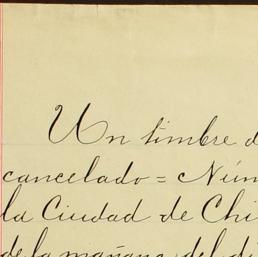 Un timbre d
cancelado = Núm
la Ciudad de Chi
de la mañana del di